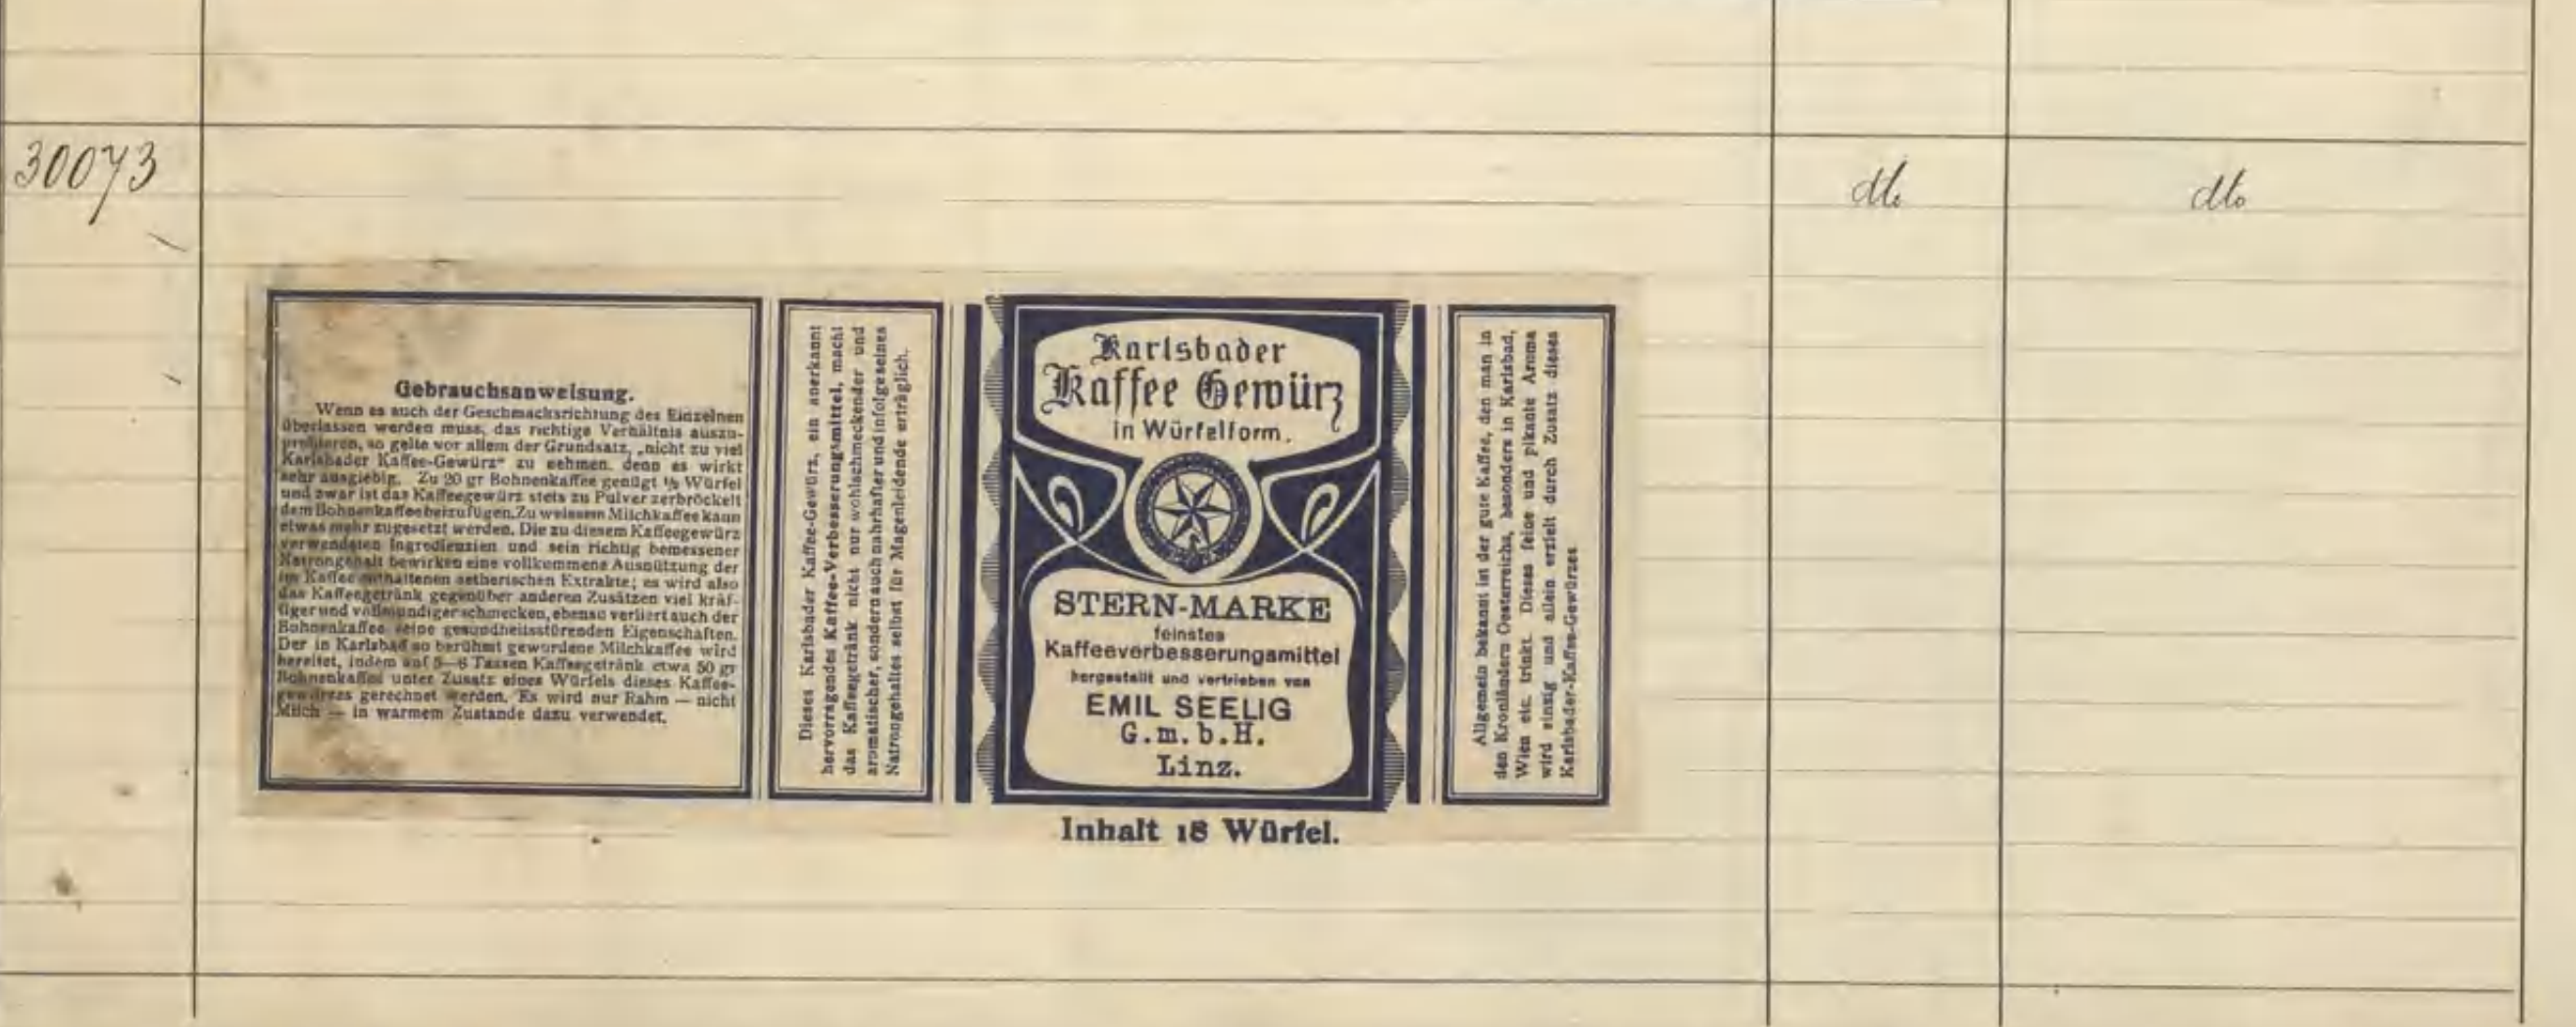 30073
dto
dto
Gebrauchsanweisung.
Wenn es auch der Geschmacksrichtung des Einzelnen
überlassen werden muss, das richtige Verhältnis auszu-
probieren, so gelte vor allem der Grundsatz, „nicht zu viel
Karlsbader Kaffee-Gewürz“ zu nehmen, denn es wirkt
sehr ausgiebig. Zu 20 gr Bohnenkaffee genügt ½ Würfel
und zwar ist das Kaffeegewürz stets zu Pulver zerbröckelt
dem Bohnenkaffee beizufügen. Zu weissem Milchkaffee kann
etwas mehr zugesetzt werden. Die zu diesem Kaffeegewürz
verwendeten Ingredienzien und sein richtig bemessener
Natrongehalt bewirken eine vollkommene Ausnützung der
im Kaffee enthaltenen aetherischen Extrakte; es wird also
das Kaffeegetränk gegenüber anderen Zusätzen viel kräf-
tiger und vollmundiger schmecken, ebenso verliert auch der
Bohnenkaffee seine gesundheitsstörenden Eigenschaften.
Der in Karlsbad so berühmt gewordene Milchkaffee wird
bereitet, indem auf 5—6 Tassen Kaffeegetränk etwa 50 gr
Bohnenkaffee unter Zusatz eines Würfels dieses Kaffee-
gewürzes gerechnet werden. Es wird nur Rahm — nicht
Milch — in warmem Zustande dazu verwendet.
Dieses Karlsbader Kaffee-Gewürz, ein anerkannt
hervorragendes Kaffee-Verbesserungsmittel, macht
das Kaffeegetränk nicht nur wohlschmeckender und
aromatischer, sondern auch nahrhafter und infolge seines
Natrongehaltes selbst für Magenleidende erträglich.
Karlsbader
Kaffee Gewürz
in Würfelform.
STERN-MARKE
feinstes
Kaffeeverbesserungsmittel
hergestellt und vertrieben von
EMIL SEELIG
G.m.b.H.
Linz.
Inhalt 18 Würfel.
Allgemein bekannt ist der gute Kaffee, den man in
den Kronländern Oesterreichs, besonders in Karlsbad,
Wien etc. trinkt. Dieses feine und pikante Aroma
wird einzig und allein erzielt durch Zusatz dieses
Karlsbader-Kaffee-Gewürzes